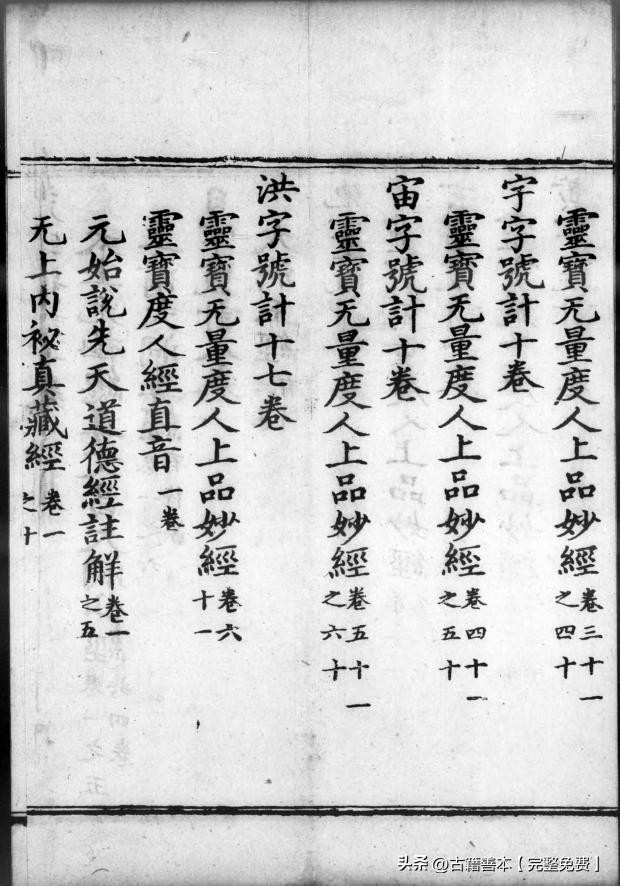 靈寶无量度人上品妙經卷三十一之四十
宇字號計十卷
靈寶无量度人上品妙經卷四十一之五十
宙字號計十卷
靈寶无量度人上品妙經卷五十一之六十
洪字號計十七卷
靈寶无量度人上品妙經卷六十一
靈寶度人經直音一卷
元始說先天道德經註解卷一之五
无上內祕真藏經卷一之十
头条 @古籍善本【完整免费】